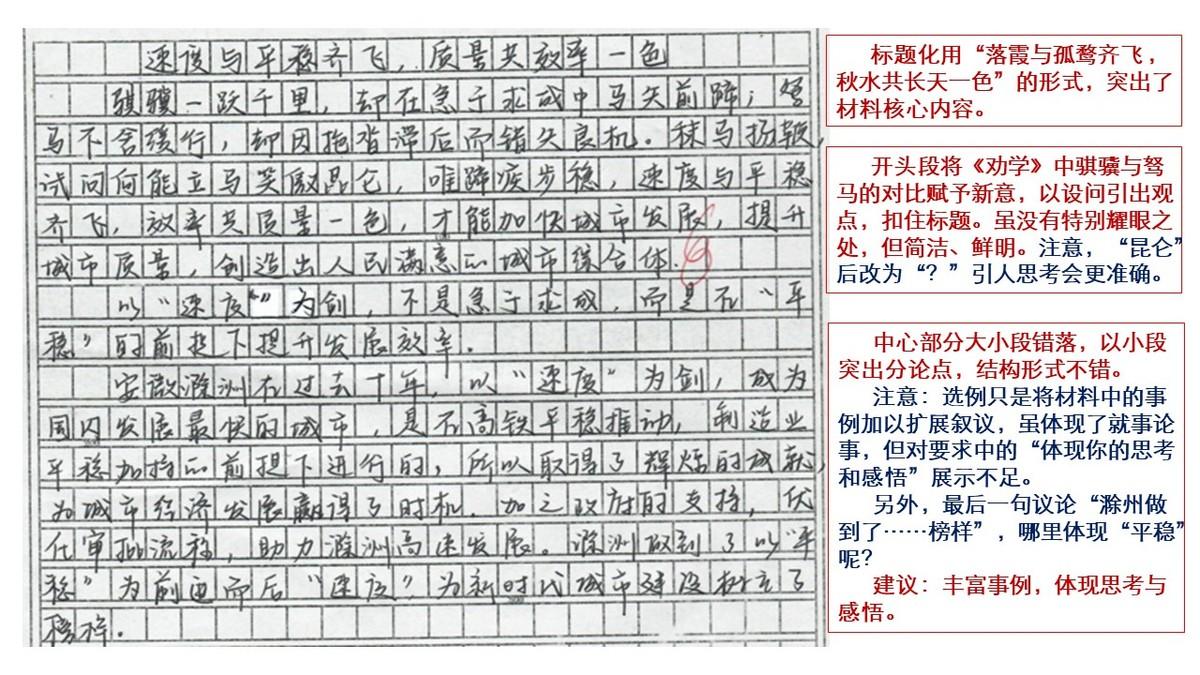 速度与平稳齐飞，质量共效率一色
骐骥一跃千里，却在急于求成中马失前蹄；驽
马不舍缓行，却因拖沓滞后而错失良机。秣马扬鞭，
试问何能立马笑傲昆仑，唯蹄疾步稳，速度与平稳
齐飞，效率共质量一色，才能加快城市发展，提升
城市质量，创造出人民满意的城市综合体。
以“速度”为剑，不是急于求成，而是在“平
稳”的前提下提升发展效率。
安徽滁洲在过去十年，以“速度”为剑，成为
国内发展最快的城市，是在高铁平稳推动，制造业
平稳加持的前提下进行的，所以取得了辉煌的成就，
为城市经济发展赢得了时机．加之政府的支持，优
化审批流程，助力滁洲高速发展。滁洲做到了以“平
稳”为前进而后“速度”为新时代城市建设树立了
榜样．
标题化用“落霞与孤鹜齐飞，
秋水共长天一色”的形式，突出了
材料核心内容。
开头段将《劝学》中骐骥与驽
马的对比赋予新意，以设问引出观
点，扣住标题。虽没有特别耀眼之
处，但简洁、鲜明。注意，“昆仑”
后改为“？”引人思考会更准确。
中心部分大小段错落，以小段
突出分论点，结构形式不错。
注意：选例只是将材料中的事
例加以扩展叙议，虽体现了就事论
事，但对要求中的“体现你的思考
和感悟”展示不足。
另外，最后一句议论“滁州做
到了……榜样”，哪里体现“平稳”
呢？
建议：丰富事例，体现思考与
感悟。